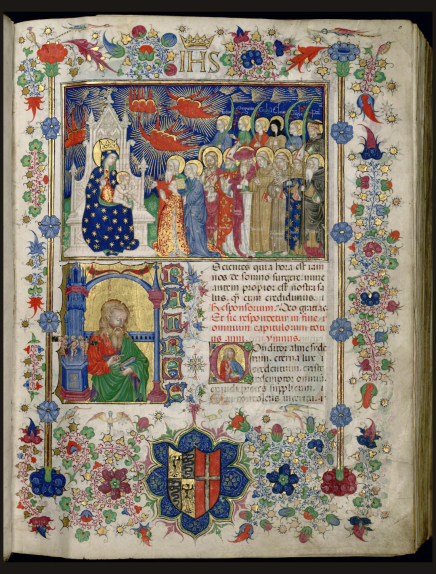 IHS
Scientes quia hora est iam
nos de somno surgere nunc
autem propior est nostra sa
lus, q̄ cum credidimus.
Responsorium. Deo gratias
Et sic respondetur in fine
omnium capitulorum toti
us anni. ymnus.
Conditor alme side
rum, eterna lux
credentium. criste
redemptor omniū
exaudi preces supplicum.